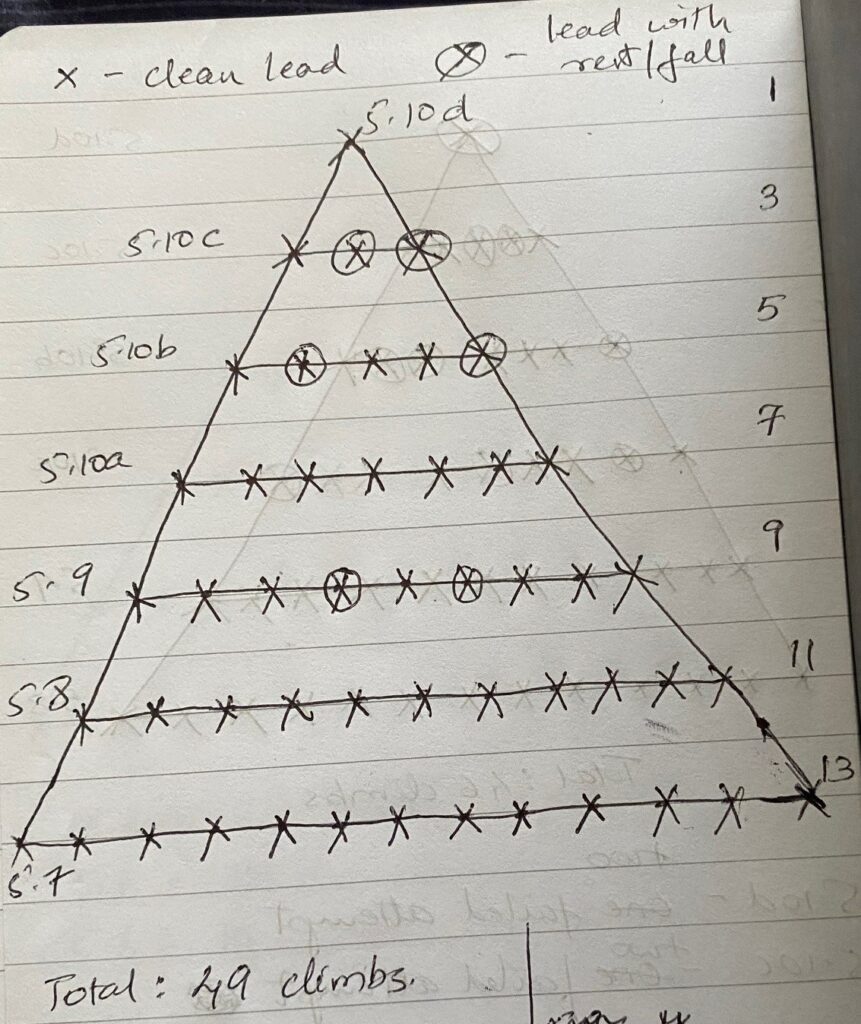 x - clean lead
ⓧ - lead with rest/fall
5.10d 1
5.10c 3
5.10b 5
5.10a 7
5.9 9
5.8 11
13
5.7
Total: 49 climbs.